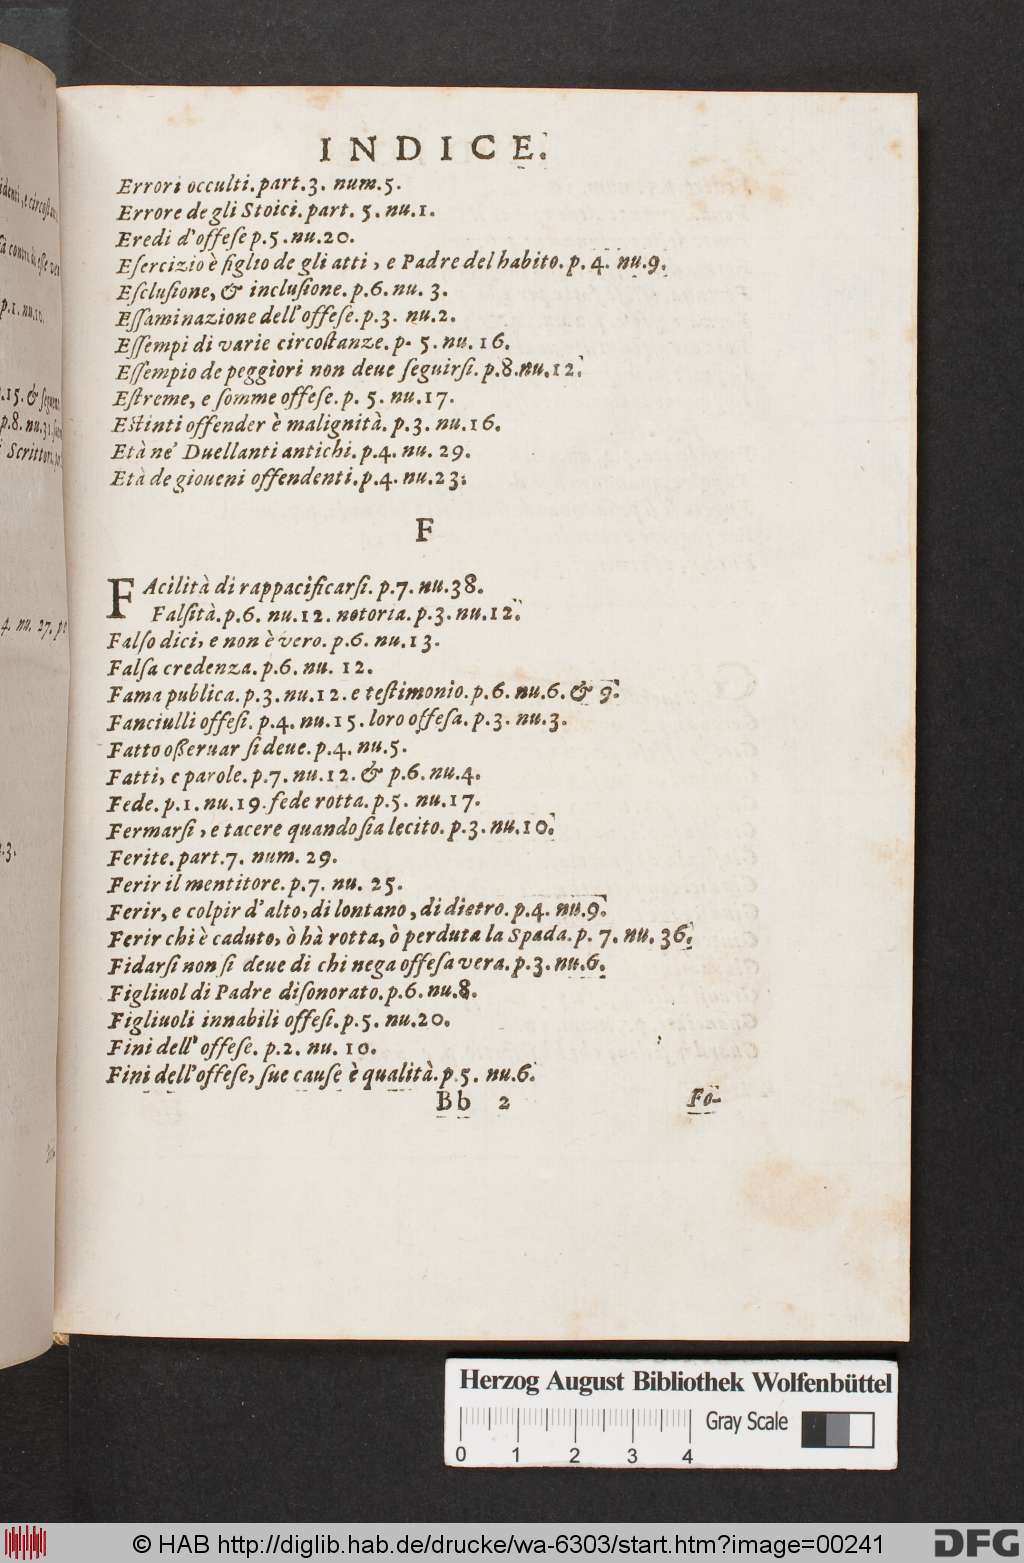 INDICE.
Errori occulti. part. 3. num. 5.
Errore de gli Stoici. part. 5. nu. 1.
Eredi d'offese p. 5. nu. 20.
Eſercizio è figlio de gli atti, e Padre del habito. p. 4. nu. 9.
Eſcluſione, & incluſione. p. 6. nu. 3.
Eſſaminazione dell'offeſe. p. 3. nu. 2.
Eſſempi di varie circoſtanze. p. 5. nu. 16.
Eſſempio de peggiori non deue ſeguirſi. p. 8. nu. 12.
Eſtreme, e ſomme offeſe. p. 5. nu. 17.
Eſtinti offender è malignità. p. 3. nu. 16.
Età ne' Duellanti antichi. p. 4. nu. 29.
Età de gioueni offendenti. p. 4. nu. 23.
F
FAcilità di rappacificarſi. p. 7. nu. 38.
Falſità. p. 6. nu. 12. notoria. p. 3. nu. 12.
Falſo dici, e non è vero. p. 6. nu. 13.
Falſa credenza. p. 6. nu. 12.
Fama publica. p. 3. nu. 12. e teſtimonio. p. 6. nu. 6. & 9.
Fanciulli offeſi. p. 4. nu. 15. loro offeſa. p. 3. nu. 3.
Fatto oßeruar ſi deue. p. 4. nu. 5.
Fatti, e parole. p. 7. nu. 12. & p. 6. nu. 4.
Fede. p. 1. nu. 19. fede rotta. p. 5. nu. 17.
Fermarſi, e tacere quando ſia lecito. p. 3. nu. 10.
Ferite. part. 7. num. 29.
Ferir il mentitore. p. 7. nu. 25.
Ferir, e colpir d'alto, di lontano, di dietro. p. 4. nu. 9.
Ferir chi è caduto, ò hà rotta, ò perduta la Spada. p. 7. nu. 36.
Fidarſi non ſi deue di chi nega offeſa vera. p. 3. nu. 6.
Figliuol di Padre diſonorato. p. 6. nu. 8.
Figliuoli innabili offeſi. p. 5. nu. 20.
Fini dell' offeſe. p. 2. nu. 10.
Fini dell'offeſe, ſue cauſe è qualità. p. 5. nu. 6.
Bb 2 Fo-
p. 1. nu. 11.
. 15. & ſeguen
p. 8. nu. 31.
Scrittori
4. nu. 27. p
. 3.
Herzog August Bibliothek Wolfenbüttel
Gray Scale
0 1 2 3 4
© HAB http://diglib.hab.de/drucke/wa-6303/start.htm?image=00241
DFG